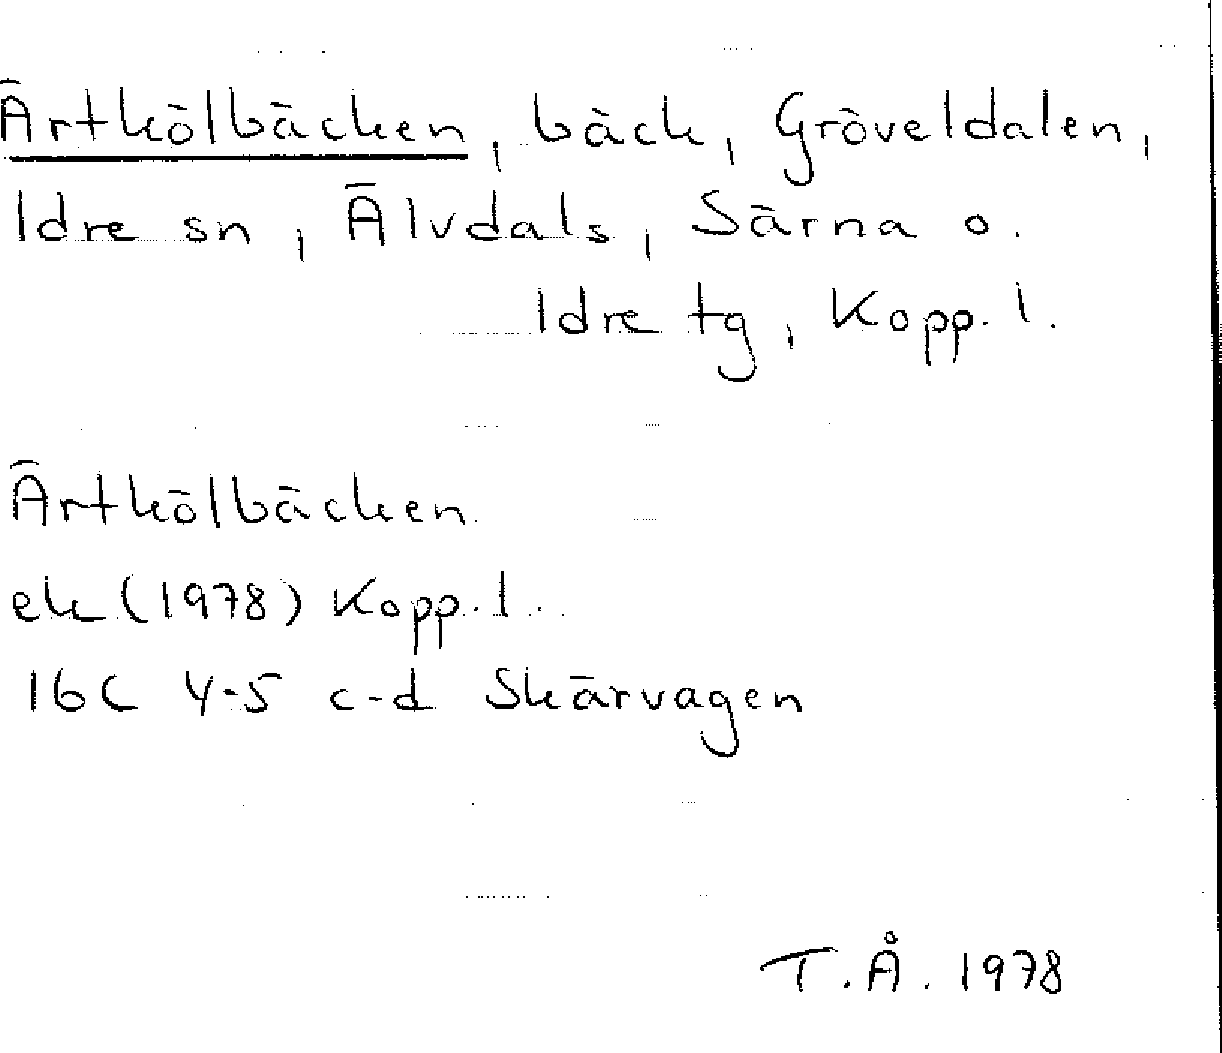 Ärtkölbäcken, bäck, Gröveldalen,
Idre sn, Älvdals, Särna o.
Idre tg, Kopp. l.
Ärtkölbäcken
ek (1978) Kopp. l.
16C 4-5 c-d Skärvagen
T.Å. 1978